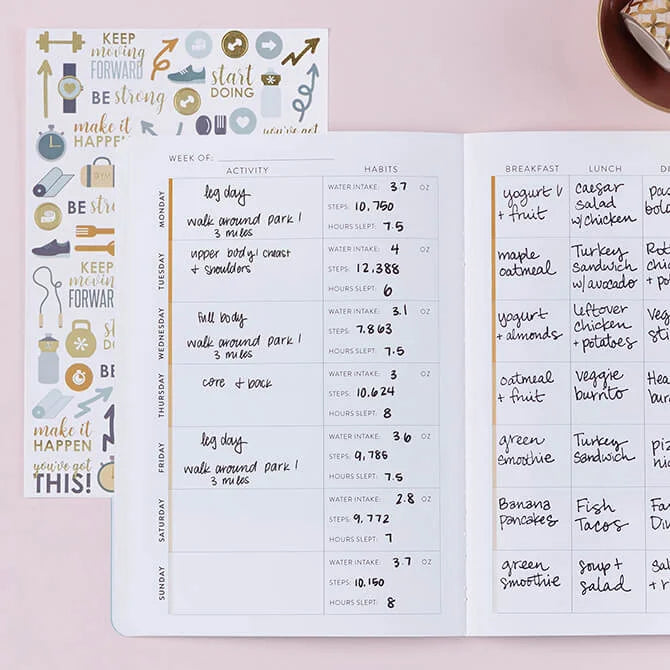 KEEP
moving
FORWARD
start
DOING
BE strong
make it
HAPPEN
you've got
GYM
BE
KEEP
moving
FORWARD
BE
make it
HAPPEN
you've got
THIS!
WEEK OF:
ACTIVITY HABITS
MONDAY
leg day
walk around park /
3 miles
WATER INTAKE: 3.7 OZ
STEPS: 10,750
HOURS SLEPT: 7.5
TUESDAY
upper body / chest
+ shoulders
WATER INTAKE: 4 OZ
STEPS: 12,388
HOURS SLEPT: 6
WEDNESDAY
full body
walk around park /
3 miles
WATER INTAKE: 3.1 OZ
STEPS: 7,863
HOURS SLEPT: 7.5
THURSDAY
core + back
WATER INTAKE: 3 OZ
STEPS: 10,624
HOURS SLEPT: 8
FRIDAY
leg day
walk around park /
3 miles
WATER INTAKE: 36 OZ
STEPS: 9,785
HOURS SLEPT: 7.5
SATURDAY
WATER INTAKE: 2.8 OZ
STEPS: 9,772
HOURS SLEPT: 7
SUNDAY
WATER INTAKE: 3.7 OZ
STEPS: 10,150
HOURS SLEPT: 8
BREAKFAST LUNCH
yogurt
+ fruit
caesar
salad
w/chicken
maple
oatmeal
Turkey
Sandwich
w/avocado
yogurt
+ almonds
leftover
chicken
+ potatoes
oatmeal
+ fruit
veggie
burrito
green
smoothie
Turkey
Sandwich
Banana
pancakes
Fish
Tacos
green
smoothie
soup +
salad